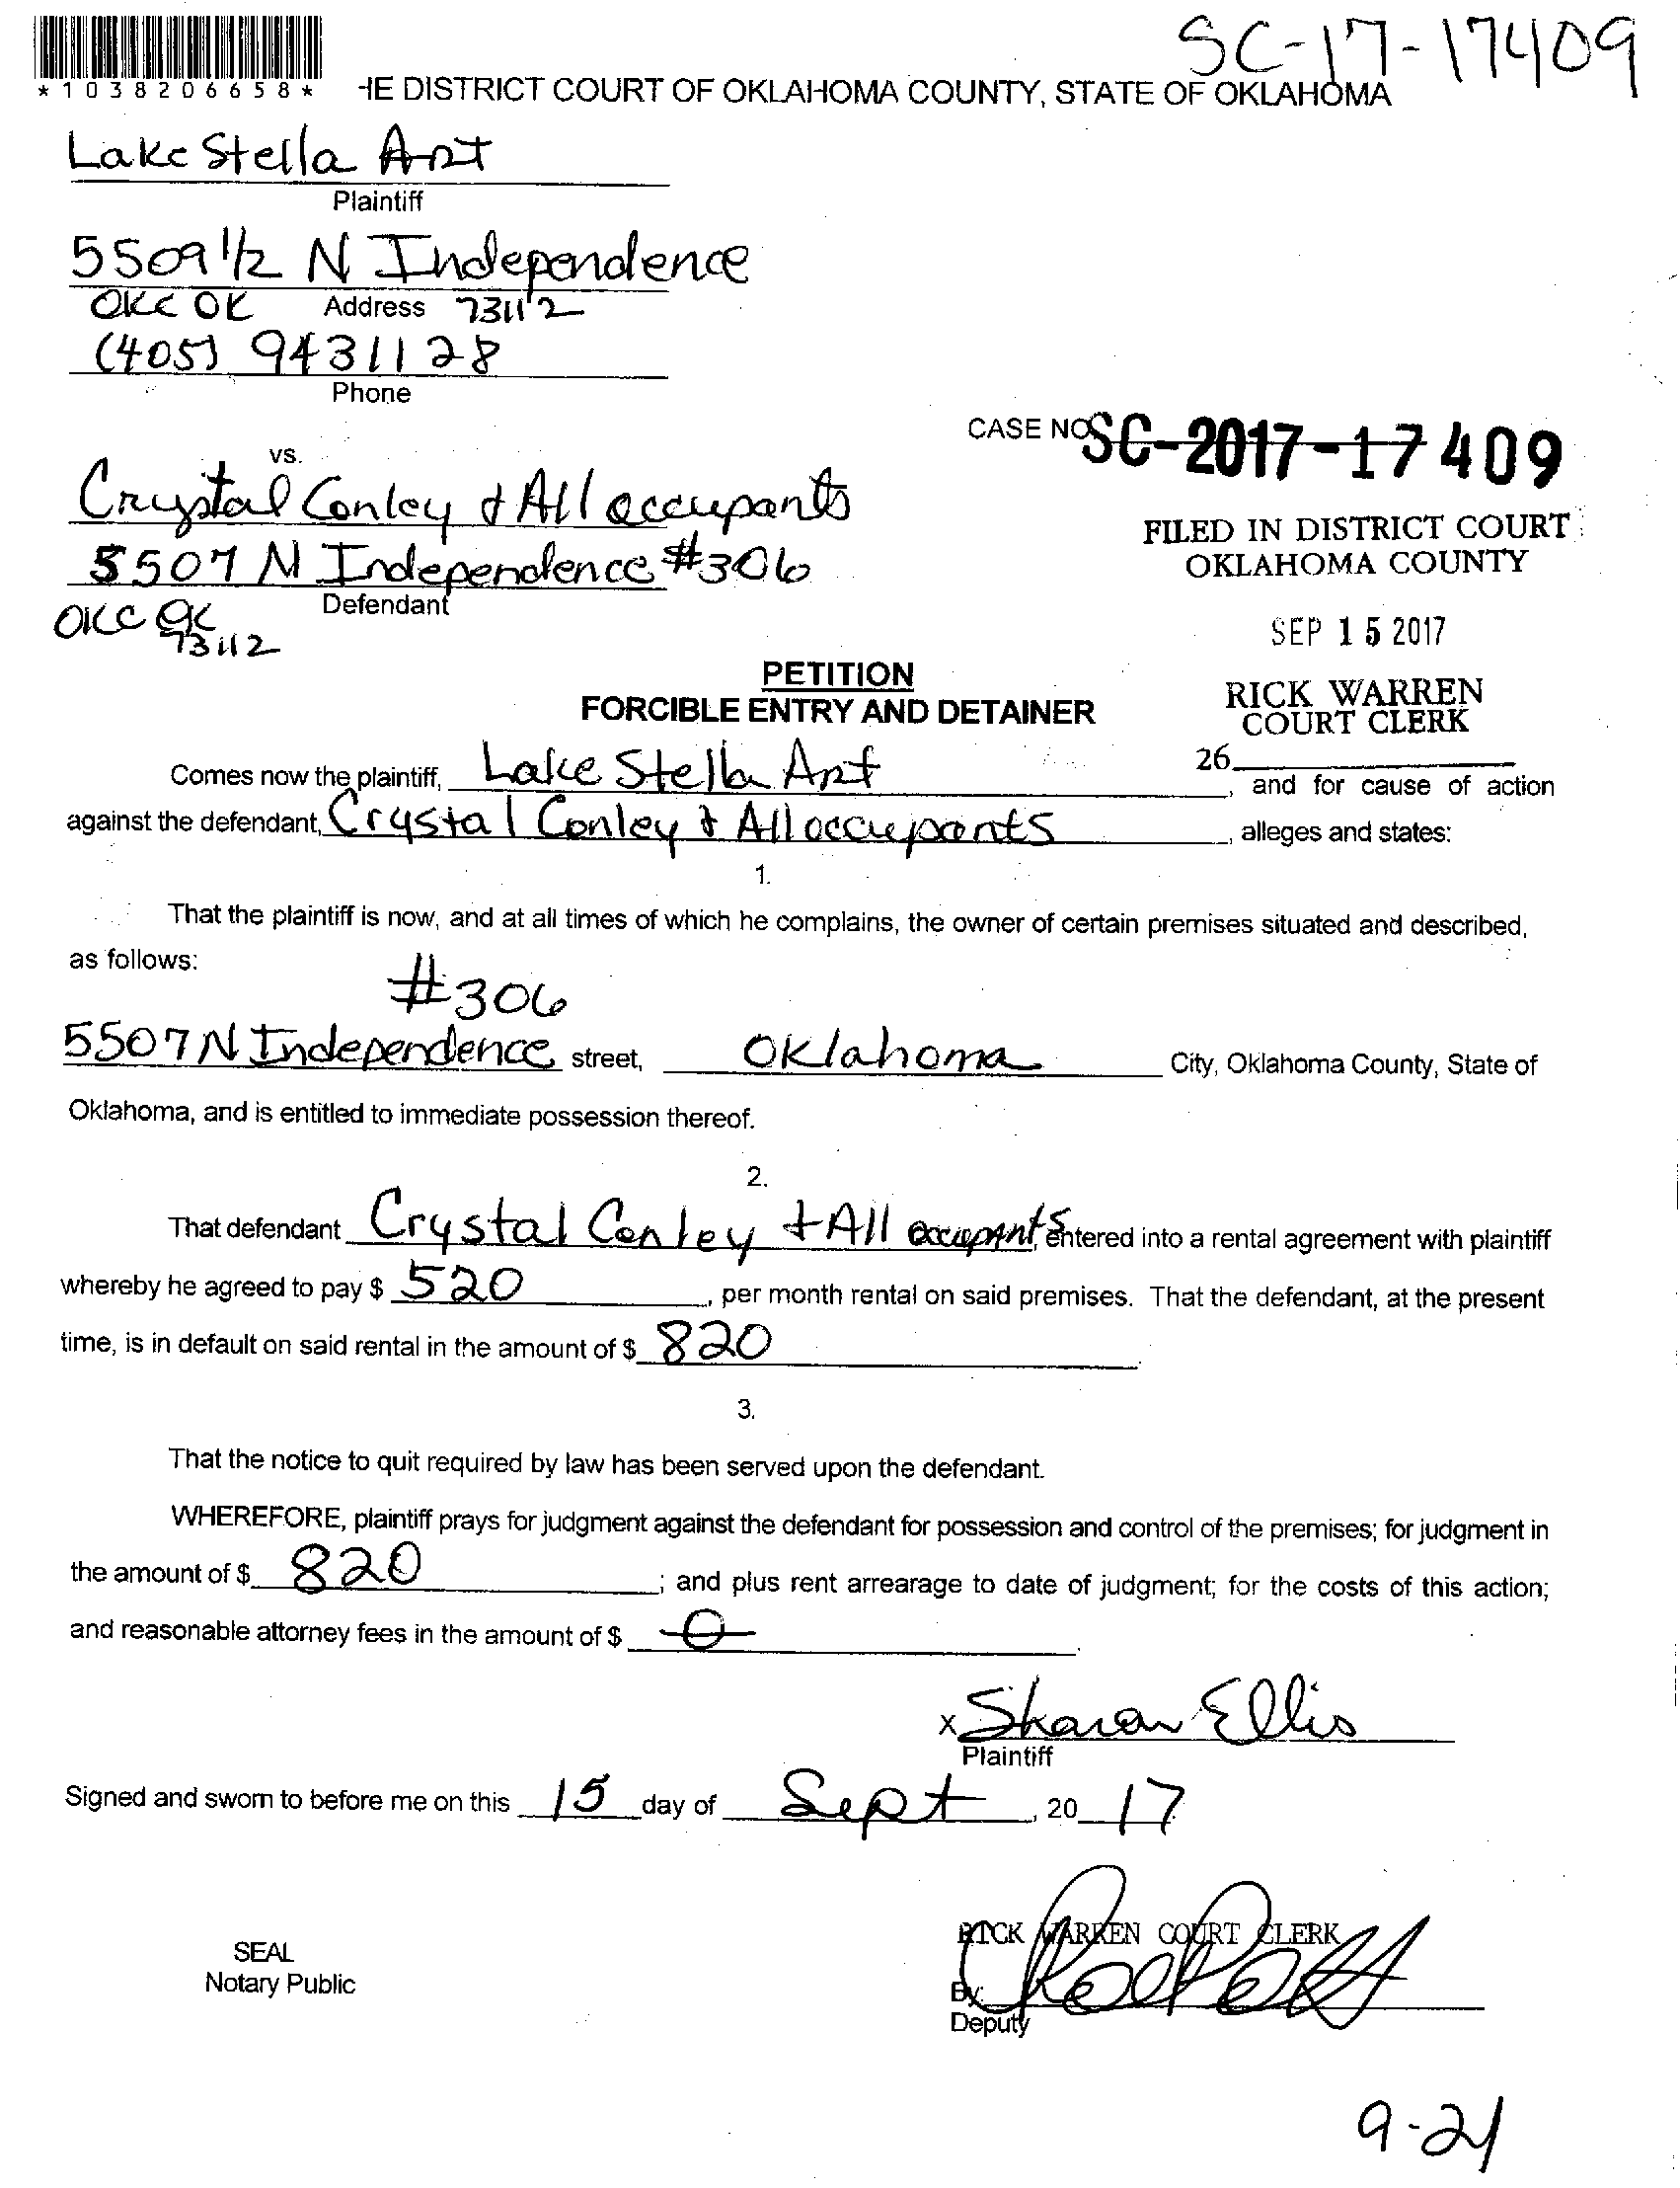 SC-17-17409
*1038206658*
HE DISTRICT COURT OF OKLAHOMA COUNTY, STATE OF OKLAHOMA
Lake Stella Apt
Plaintiff
5509 1/2 N Independence
OKC OK Address 73112
(405) 943 1128
Phone
CASE NO SC-2017-17409
vs.
Crystal Conley & All occupants
5507 N Independence #306
Defendant
OKC OK
73112
FILED IN DISTRICT COURT
OKLAHOMA COUNTY
SEP 15 2017
RICK WARREN
COURT CLERK
26
PETITION
FORCIBLE ENTRY AND DETAINER
Comes now the plaintiff, Lake Stella Apt, and for cause of action
against the defendant, Crystal Conley & All occupants, alleges and states:
1.
That the plaintiff is now, and at all times of which he complains, the owner of certain premises situated and described,
as follows:
#306
5507 N Independence street, Oklahoma City, Oklahoma County, State of
Oklahoma, and is entitled to immediate possession thereof.
2.
That defendant Crystal Conley + All occupants, entered into a rental agreement with plaintiff
whereby he agreed to pay $ 520, per month rental on said premises. That the defendant, at the present
time, is in default on said rental in the amount of $ 820.
3.
That the notice to quit required by law has been served upon the defendant.
WHEREFORE, plaintiff prays for judgment against the defendant for possession and control of the premises; for judgment in
the amount of $ 820; and plus rent arrearage to date of judgment; for the costs of this action;
and reasonable attorney fees in the amount of $ 0.
x Sharon Ellis
Plaintiff
Signed and sworn to before me on this 15 day of Sept, 20 17
RICK WARREN COURT CLERK
SEAL
Notary Public
By:
Deputy
9-21